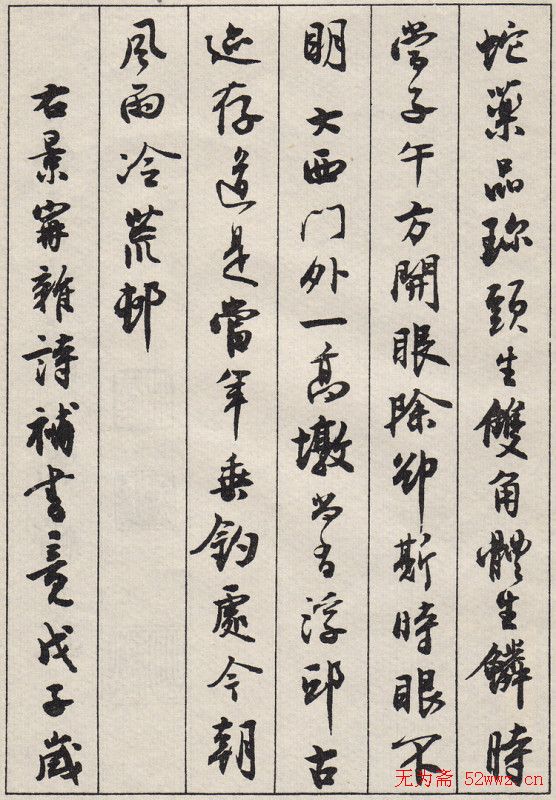 蛇藥品珍頭生雙角體生鱗時
當子午方開眼除卻斯時眼不
明大西門外一高墩尚有浮邱古
迹存道是當年垂釣處今朝
風雨冷荒邨
右景甯雜詩補書竟戊子歲
无为斋 52wwz.cn